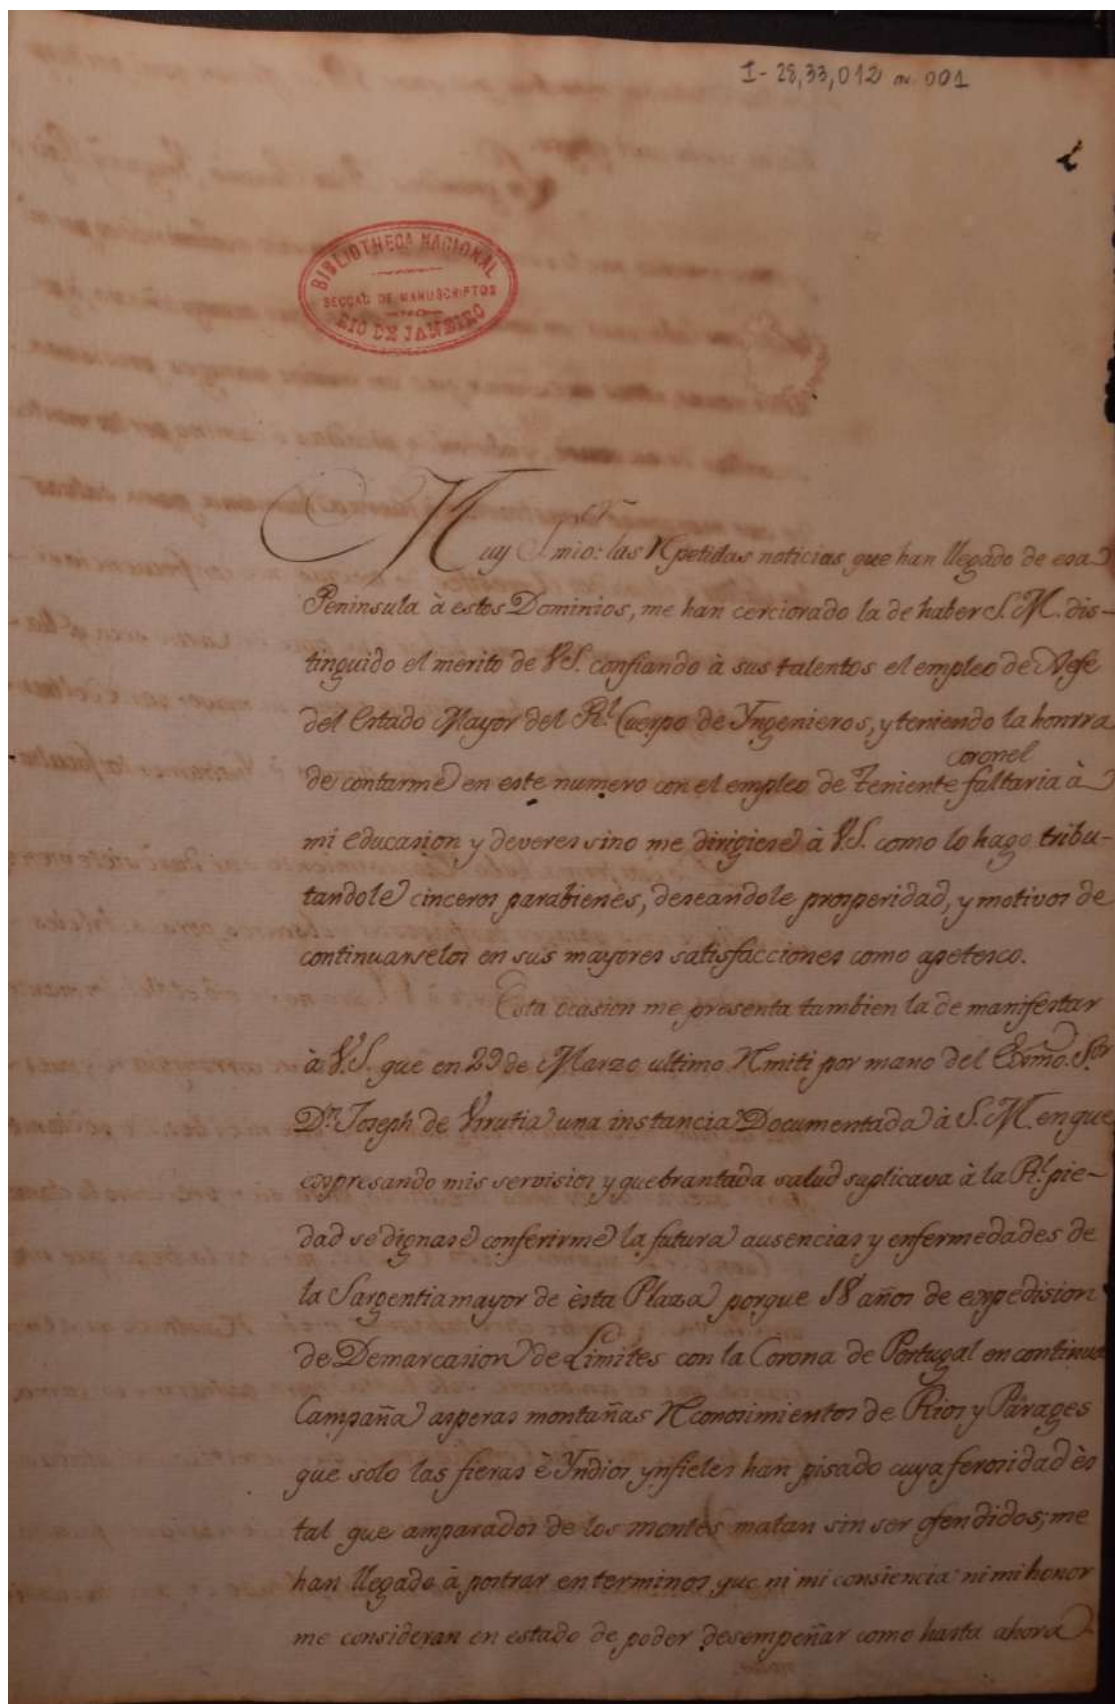 I-28,33,012 nº 001
BIBLIOTHECA NACIONAL
SECÇAO DE MANUSCRIPTOS
RIO DE JANEIRO
Muy S.r mio: las Rpetidas noticias, que han llegado de esa
Peninsula à estos Dominios, me han cerciorado la de haber S. M. dis-
tinguido el merito de V.S. confiando à sus talentos el empleo de Xefe
del Estado Mayor del Rl. Cuerpo de Yngenieros, y teniendo la honrra
de contarme en este numero con el empleo de Teniente coronel faltaria à
mi educasion y deveres sino me dirigiese à V.S. como lo hago tribu-
tandole cinceros parabienes, deseandole prosperidad, y motivos de
continuarselos en sus mayores satisfacciones como apetesco.
Esta ocasion me presenta tambien la de manifestar
à V.S. que en 29 de Marzo ultimo Rmiti por mano del Exmo. S.or
Dn. Joseph de Vrutia una instancia Documentada à S. M. en que
expresando mis servisios y quebrantada salud suplicava à la Rl. pie-
dad se dignase conferirme la futura ausencias y enfermedades de
la Sargentia mayor de èsta Plaza porque 18 años de expedision
de Demarcasion de Limites con la Corona de Portugal en continua
Campaña asperas montañas Rconosimientos de Rios y Parages
que solo las fieras è Yndios ynfieles han pisado cuya ferosidad ès
tal que amparados de los montes matan sin ser ofendidos; me
han llegado à postrar en terminos que ni mi consiencia ni mi honor
me consideran en estado de poder desempeñar como hasta ahora